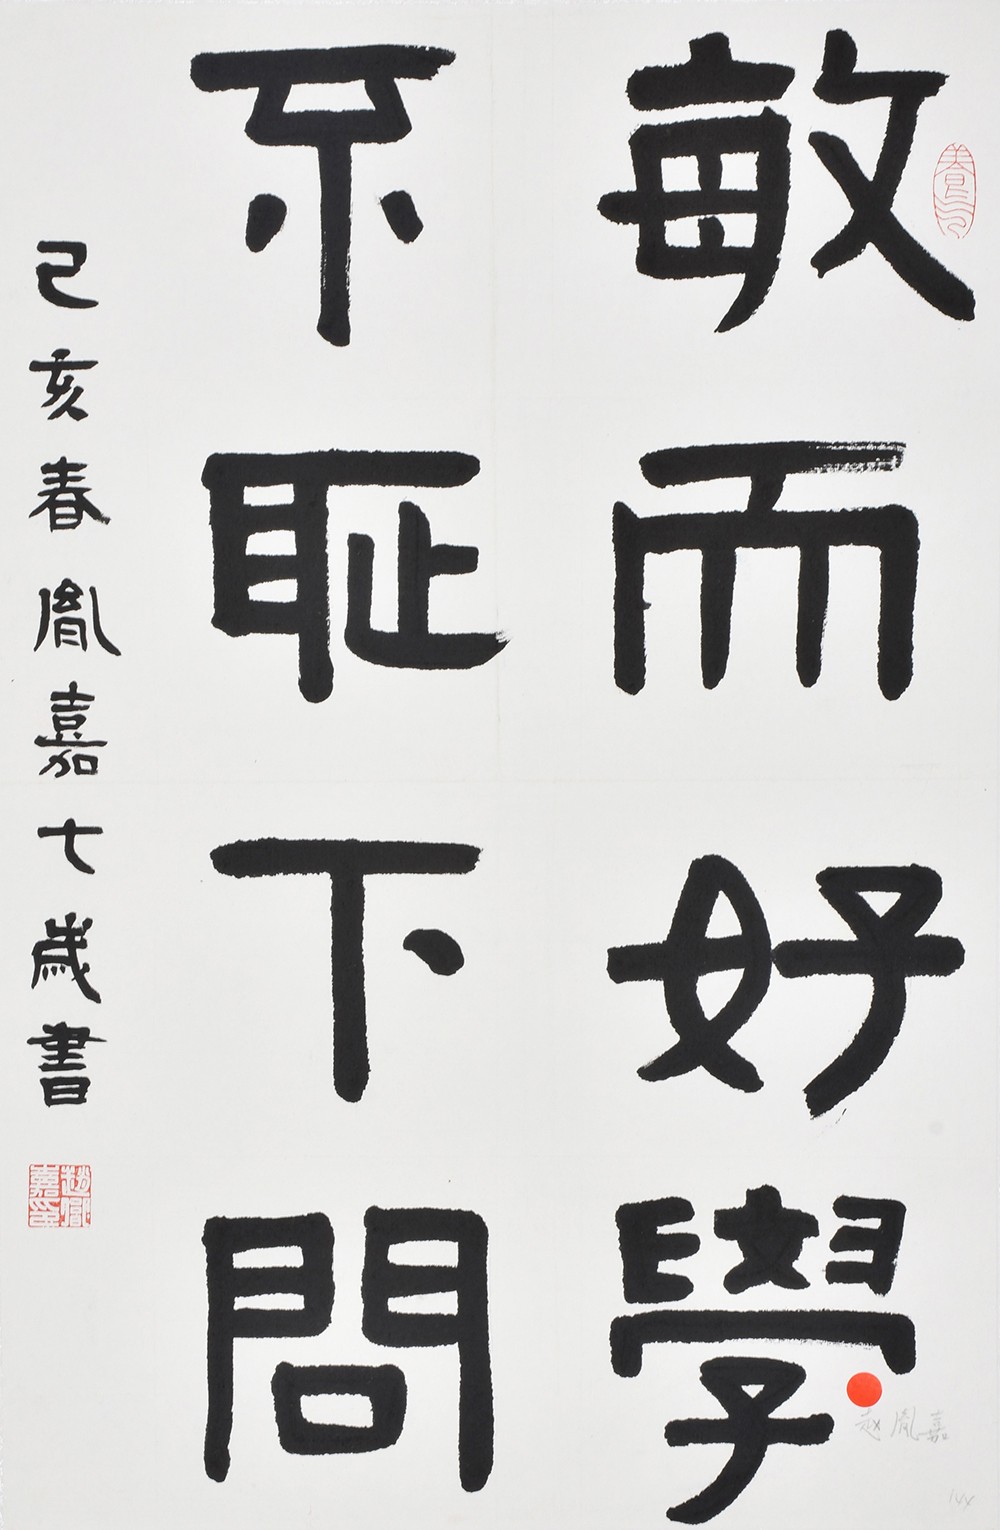 敏而好學
不恥下問
己亥春胤嘉七歲書
趙胤嘉印
赵胤嘉
144